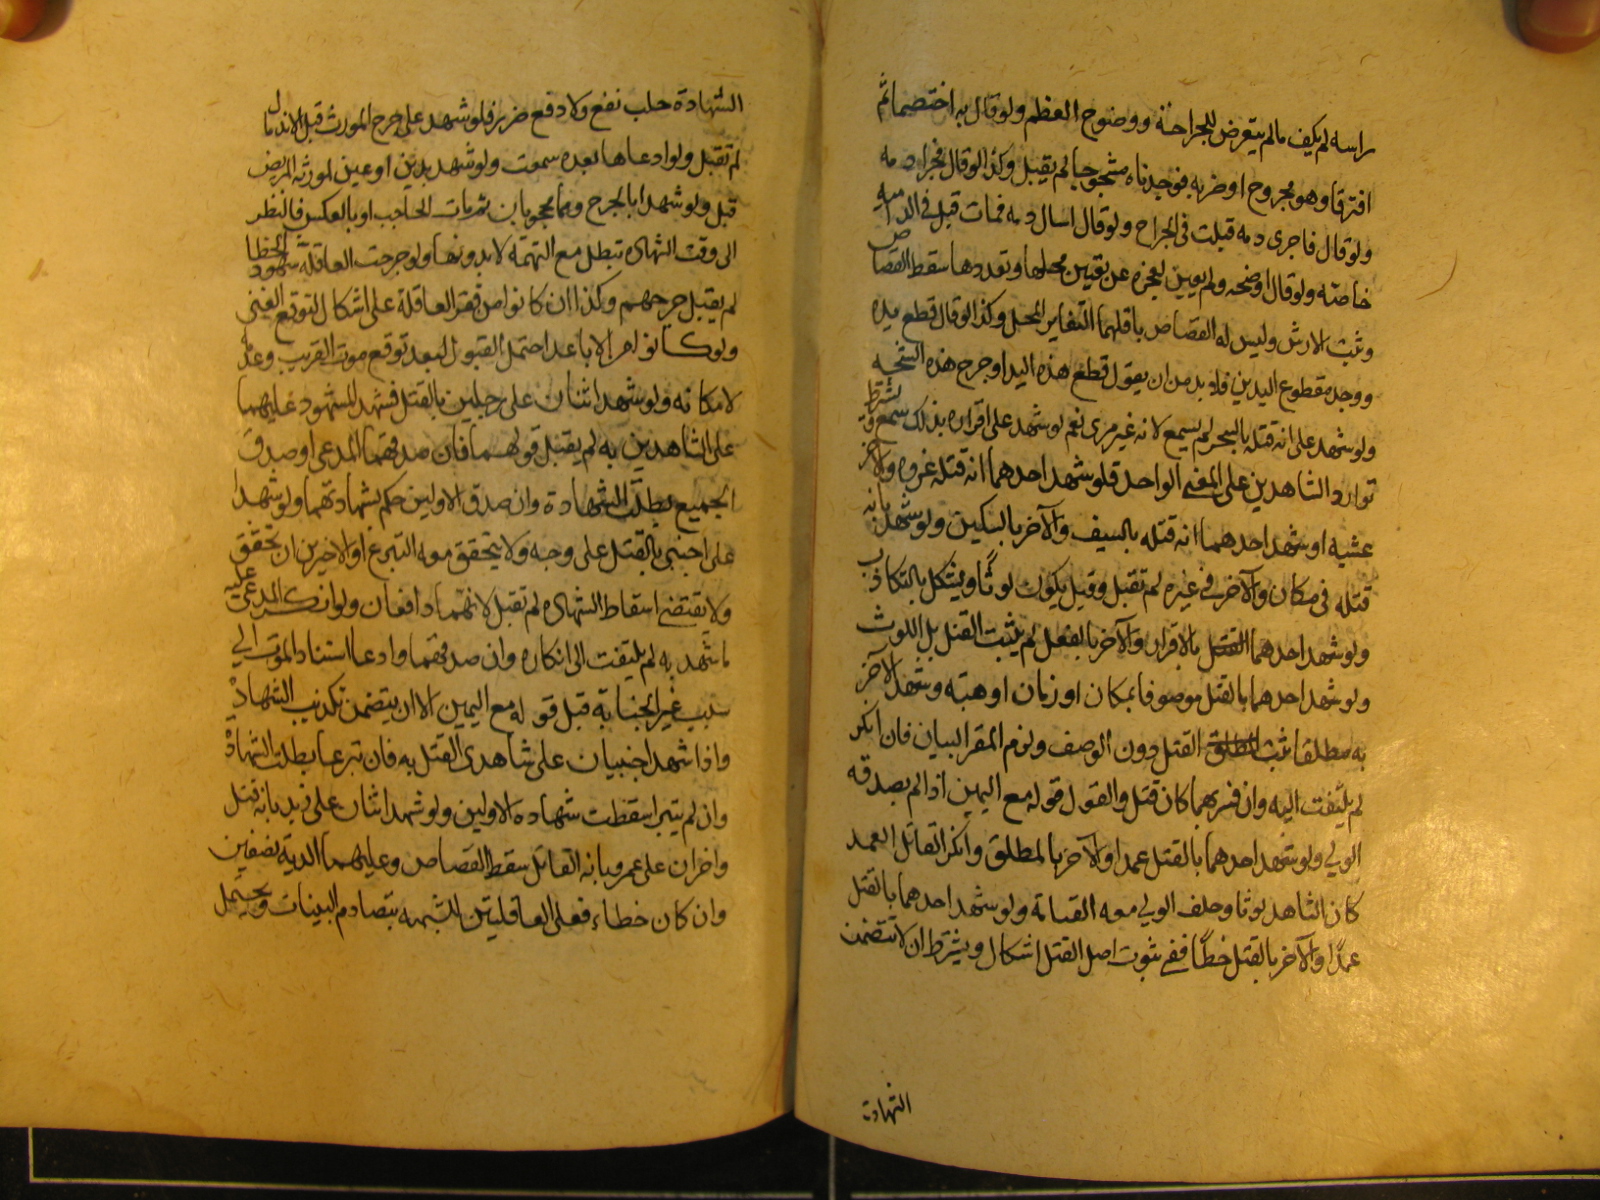 راسه لم يكف مالم يتعرض للجراحة ووضوح العظم ولو قال به اختصما ثم
افترقا وهو مجروح او ضربه فوجدناه مشجوجا لم يقبل وكذا لو قال فجرا دمه
ولو قال فاجرى دمه قبلت في الجراح ولو قال اسال دمه فمات قبل في الدامية
خاصة ولو قال اوضحه ولم يعين لعجزه عن تعيين محلها وتعددها سقط القصاص
وثبت الارش وليس له القصاص باقلهما لتغاير المحل وكذا لو قال قطع يده
ووجد مقطوع اليدين فلا بد من ان يقول قطع هذه اليد او جرح هذه الشجه
ولو شهد على انه قتله بالسحر لم يسمع لانه غير مرئ نعم لو شهد على اقراره بذلك سمع ويشترط
توارد الشاهدين على المعنى الواحد فلو شهد احدهما انه قتله غدوه والاخر
عشيه او شهد احدهما انه قتله بالسيف والآخر بالسكين ولو شهد بانه
قتله في مكان والآخر في غيره لم تقبل وقيل يكون لوثا ويشكل بالتكاذب
ولو شهد احدهما بالاقرار والآخر بالفعل لم يثبت القتل بل اللوث
ولو شهد احدهما بالقتل موصوفا بمكان او زمان او هيئه وشهد الآخر
به مطلقا ثبت القتل دون الوصف ولزم المقر البيان فان انكر
لم يلتفت اليه وان فسر بهما كان قتل والقول قوله مع اليمين اذا لم يصدقه
الولي ولو شهد احدهما بالقتل عمدا والآخر بالمطلق وانكر القاتل العمد
كان الشاهد لوثا وحلف الولي معه القسامة ولو شهد احدهما بالقتل
عمدا والآخر بالقتل خطأ ففي ثبوت اصل القتل اشكال ويشترط ان لا تتضمن
الشهادة
الشهادة جلب نفع ولا دفع ضرر فلو شهد على جرح المورث قبل الاندمال
لم تقبل ولو ادعاها بعده سمعت ولو شهد بدين او عين لمورثه المريض
قبل ولو شهدا بالجرح وهما محجوبان ثم مات الحاجب او بالعكس فالنظر
الى وقت الشهاده تبطل مع التهمة لا بدونها ولو جرحت العاقلة شهود الخطا
لم يقبل جرحهم وكذا ان كانوا من فقر العاقلة على اشكال لتوقع الغنى
ولو كانوا من الاباعد احتمل القبول لبعد توقع موت القريب وعدمه
لامكانه ولو شهد اثنان على رجلين بالقتل فشهد المشهود عليهما
على الشاهدين به لم يقبل قولهما فان صدقهما المدعي او صدق
الجميع بطلت الشهادة وان صدق الاولين حكم بشهادتهما ولو شهدا
على اجنبي بالقتل على وجه ولا يتحقق معه التبرع او الاخيرين ان تحقق
ولا يقتضي اسقاط الشهاده لم تقبل لانهما دافعان ولو انكر المدعى عليه
ما شهد به لم يلتفت الى انكاره وان صدقهما وادعا استناد الموت الي
سبب غير الجناية قبل قوله مع اليمين الا ان يتضمن تكذيب الشهادة
واذا شهد اجنبيان على شاهدي القتل به فان تبرعا بطلت الشهادة
وان لم يتبرا سقطت شهادة الاولين ولو شهد اثنان على زيد بانه قتل
واخران على عمرو بانه القاتل سقط القصاص وعليهما الدية نصفين
وان كان خطاء فعلى العاقلتين للشبهه بتصادم البينات ويحتمل